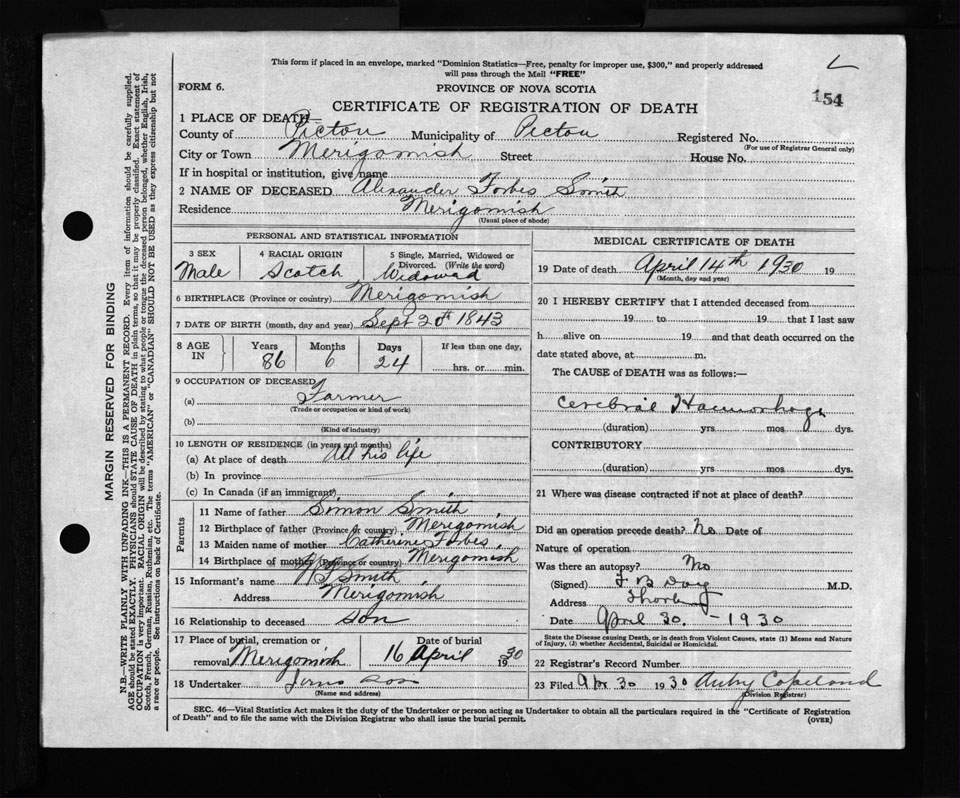 This form if placed in an envelope, marked "Dominion Statistics—Free, penalty for improper use, $300," and properly addressed
will pass through the Mail "FREE"
FORM 6.
PROVINCE OF NOVA SCOTIA
154
CERTIFICATE OF REGISTRATION OF DEATH
1 PLACE OF DEATH—
County of Pictou Municipality of Pictou Registered No.
(For use of Registrar General only)
City or Town Merigomish Street House No.
If in hospital or institution, give name
2 NAME OF DECEASED Alexander Forbes Smith
Residence Merigomish
(Usual place of abode)
PERSONAL AND STATISTICAL INFORMATION
3 SEX 4 RACIAL ORIGIN 5 Single, Married, Widowed or
Divorced. (Write the word)
Male Scotch Widowed
6 BIRTHPLACE (Province or country) Merigomish
7 DATE OF BIRTH (month, day and year) Sept 20th 1843
8 AGE IN Years Months Days If less than one day,
86 6 24 hrs. or min.
9 OCCUPATION OF DECEASED
(a) Farmer
(Trade or occupation or kind of work)
(b)
(Kind of industry)
10 LENGTH OF RESIDENCE (in years and months)
(a) At place of death All his life
(b) In province
(c) In Canada (if an immigrant)
Parents
11 Name of father Simon Smith
12 Birthplace of father (Province or country) Merigomish
13 Maiden name of mother Catherine Forbes
14 Birthplace of mother (Province or country) Merigomish
15 Informant's name Smith
Address Merigomish
16 Relationship to deceased son
17 Place of burial, cremation or Date of burial
removal Merigomish 16 April 1930
18 Undertaker Ross
(Name and address)
MEDICAL CERTIFICATE OF DEATH
19 Date of death April 14th 1930 19
(Month, day and year)
20 I HEREBY CERTIFY that I attended deceased from
19 to 19 that I last saw
h alive on 19 and that death occurred on the
date stated above, at m.
The CAUSE of DEATH was as follows:—
Cerebral Haemorhage
(duration) yrs mos dys.
CONTRIBUTORY
(duration) yrs. mos dys.
21 Where was disease contracted if not at place of death?
Did an operation precede death? No Date of
Nature of operation
Was there an autopsy? No
(Signed) M.D.
Address Thorburn
Date April 30. - 1930
State the Disease causing Death, or in death from Violent Causes, state (1) Means and Nature
of Injury, (2) whether Accidental, Suicidal or Homicidal.
22 Registrar's Record Number
23 Filed Apr 30 1930 Copeland
(Division Registrar)
SEC. 46—Vital Statistics Act makes it the duty of the Undertaker or person acting as Undertaker to obtain all the particulars required in the "Certificate of Registration
of Death" and to file the same with the Division Registrar who shall issue the burial permit. (OVER)
MARGIN RESERVED FOR BINDING
N.B.—WRITE PLAINLY WITH UNFADING INK—THIS IS A PERMANENT RECORD. Every item of information should be carefully supplied.
AGE should be stated EXACTLY. PHYSICIANS should STATE CAUSE OF DEATH in plain terms, so that it may be properly classified. Exact statement of
OCCUPATION is very important. RACIAL ORIGIN will be described by stating to what people or tongue the deceased person belonged, whether English, Irish,
Scotch, French, German, Russian, Ruthenian, etc. The terms "AMERICAN" or "CANADIAN" SHOULD NOT BE USED as they express citizenship but not
a race or people. See instructions on back of Certificate.